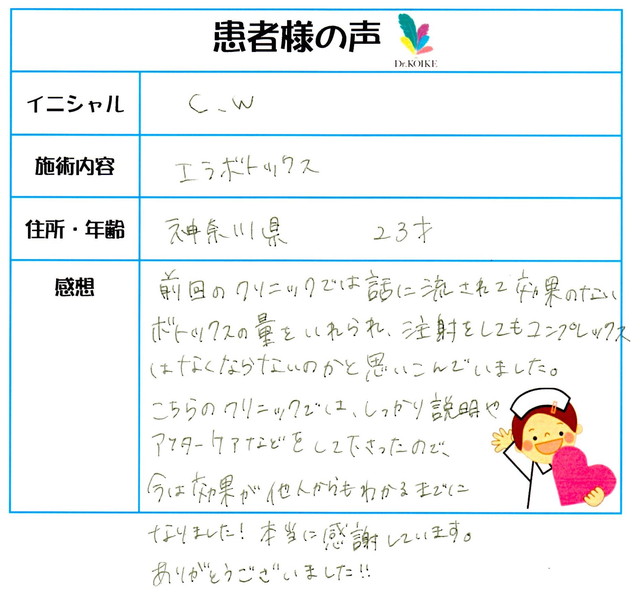 患者様の声
Dr.KOIKE
イニシャル C、W
施術内容 エラボトックス
住所・年齢 神奈川県 23才
感想
前回のクリニックでは話に流されて効果のない
ボトックスの量をいれられ、注射をしてもコンプレックス
はなくならないのかと思いこんでいました。
こちらのクリニックでは、しっかり説明や
アフターケアなどをして下さったので、
今は効果が他人からもわかるまでに
なりました!本当に感謝しています。
ありがとうございました!!